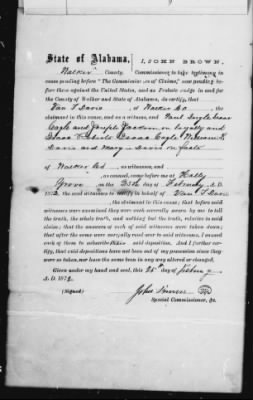 State of Alabama. } I, JOHN BROWN,
Walker County. Commissioner to take testimony in
cases pending before "The Commissioners of Claims," now pending be-
fore them against the United States, and as Probate Judge in and
for the County of Walker and State of Alabama, do certify, that
Van T Davis of Walker Co the
claimant in this cause, and as a witness, and Paul
Cagle and Joseph Jackson on loyalty and
Isaac Cagle William R
Davis and Mary Davis on facts
of Walker Co, as witnesses, and
as counsel, came before me at Holly
Grove on the 25th day of February A.D.
1872, the said witnesses to testify in behalf of Van T Davis
, the claimant in this cause; that before said
witnesses were examined they were each severally sworn by me to tell
the truth, the whole truth, and nothing but the truth, relative to said
claim; that the answers of each of said witnesses were taken down;
that after the same were carefully read over to said witnesses, I caused
each of them to subscribe their said deposition. And I further cer-
tify, that said depositions have not been out of my possession since they
were so taken, nor have the same been in any way altered or changed.
Given under my hand and seal, this 25th day of Februay
A.D. 1872.
(Signed) John Brown
Special Commissioner, &c.